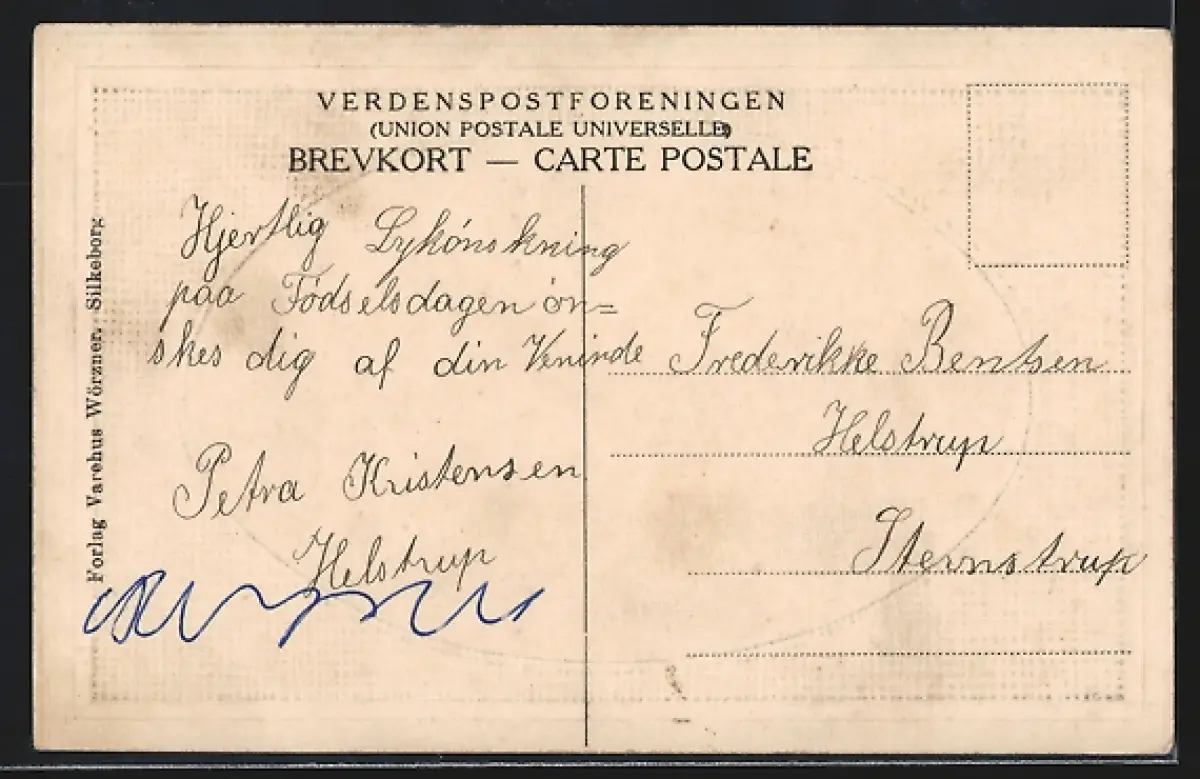 VERDENSPOSTFORENINGEN
(UNION POSTALE UNIVERSELLE)
BREVKORT — CARTE POSTALE
Hjertlig Lykónskning
paa Fódselsdagen ón=
skes dig af din Veninde
Petra Kristensen
Helstrup
Frederikke Bentsen
Helstrup
Sternstrup
Forlag Varehus Wörzner. Silkeborg